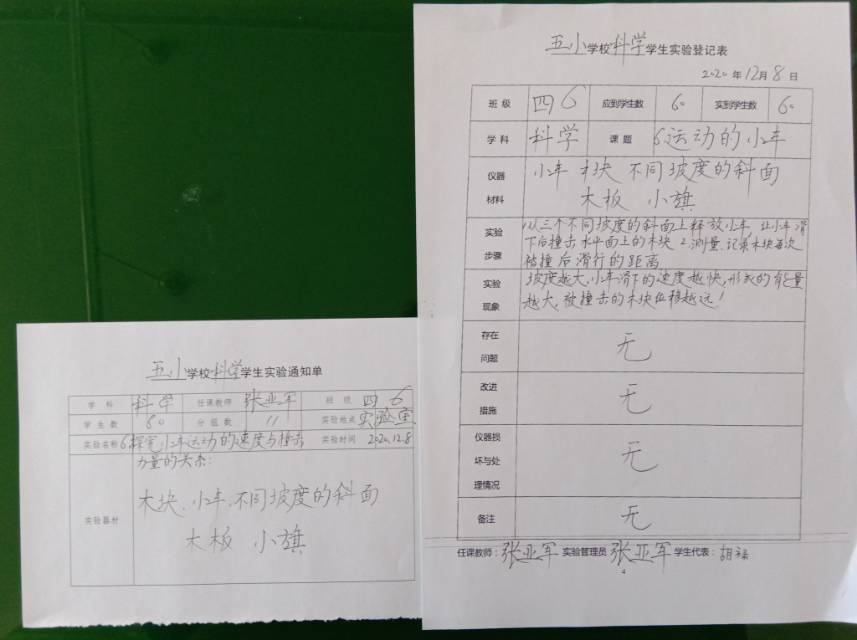 五小学校科学学生实验通知单
学科 科学 任课教师 张亚军 班级 四6
学生数 60 分组数 11 实验地点 实验室
实验名称 6探究小车运动的速度与撞击 实验时间 2020.12.8
力量的关系:
实验器材
木块、小车、不同坡度的斜面
木板 小旗
五小学校科学学生实验登记表
2020年12月8日
班级 四6 应到学生数 60 实到学生数 60
学科 科学 课题 6运动的小车
仪器材料
小车 木块 不同坡度的斜面
木板 小旗
实验步骤
以三个不同坡度的斜面上释放小车,让小车滑
下后撞击水平面上的木块 2.测量、记录木块每次
被撞后滑行的距离
实验现象
坡度越大,小车滑下的速度越快,形成的能量
越大,被撞击的木块位移越远!
存在问题 无
改进措施 无
仪器损坏与处理情况 无
备注 无
任课教师:张亚军 实验管理员 张亚军 学生代表: